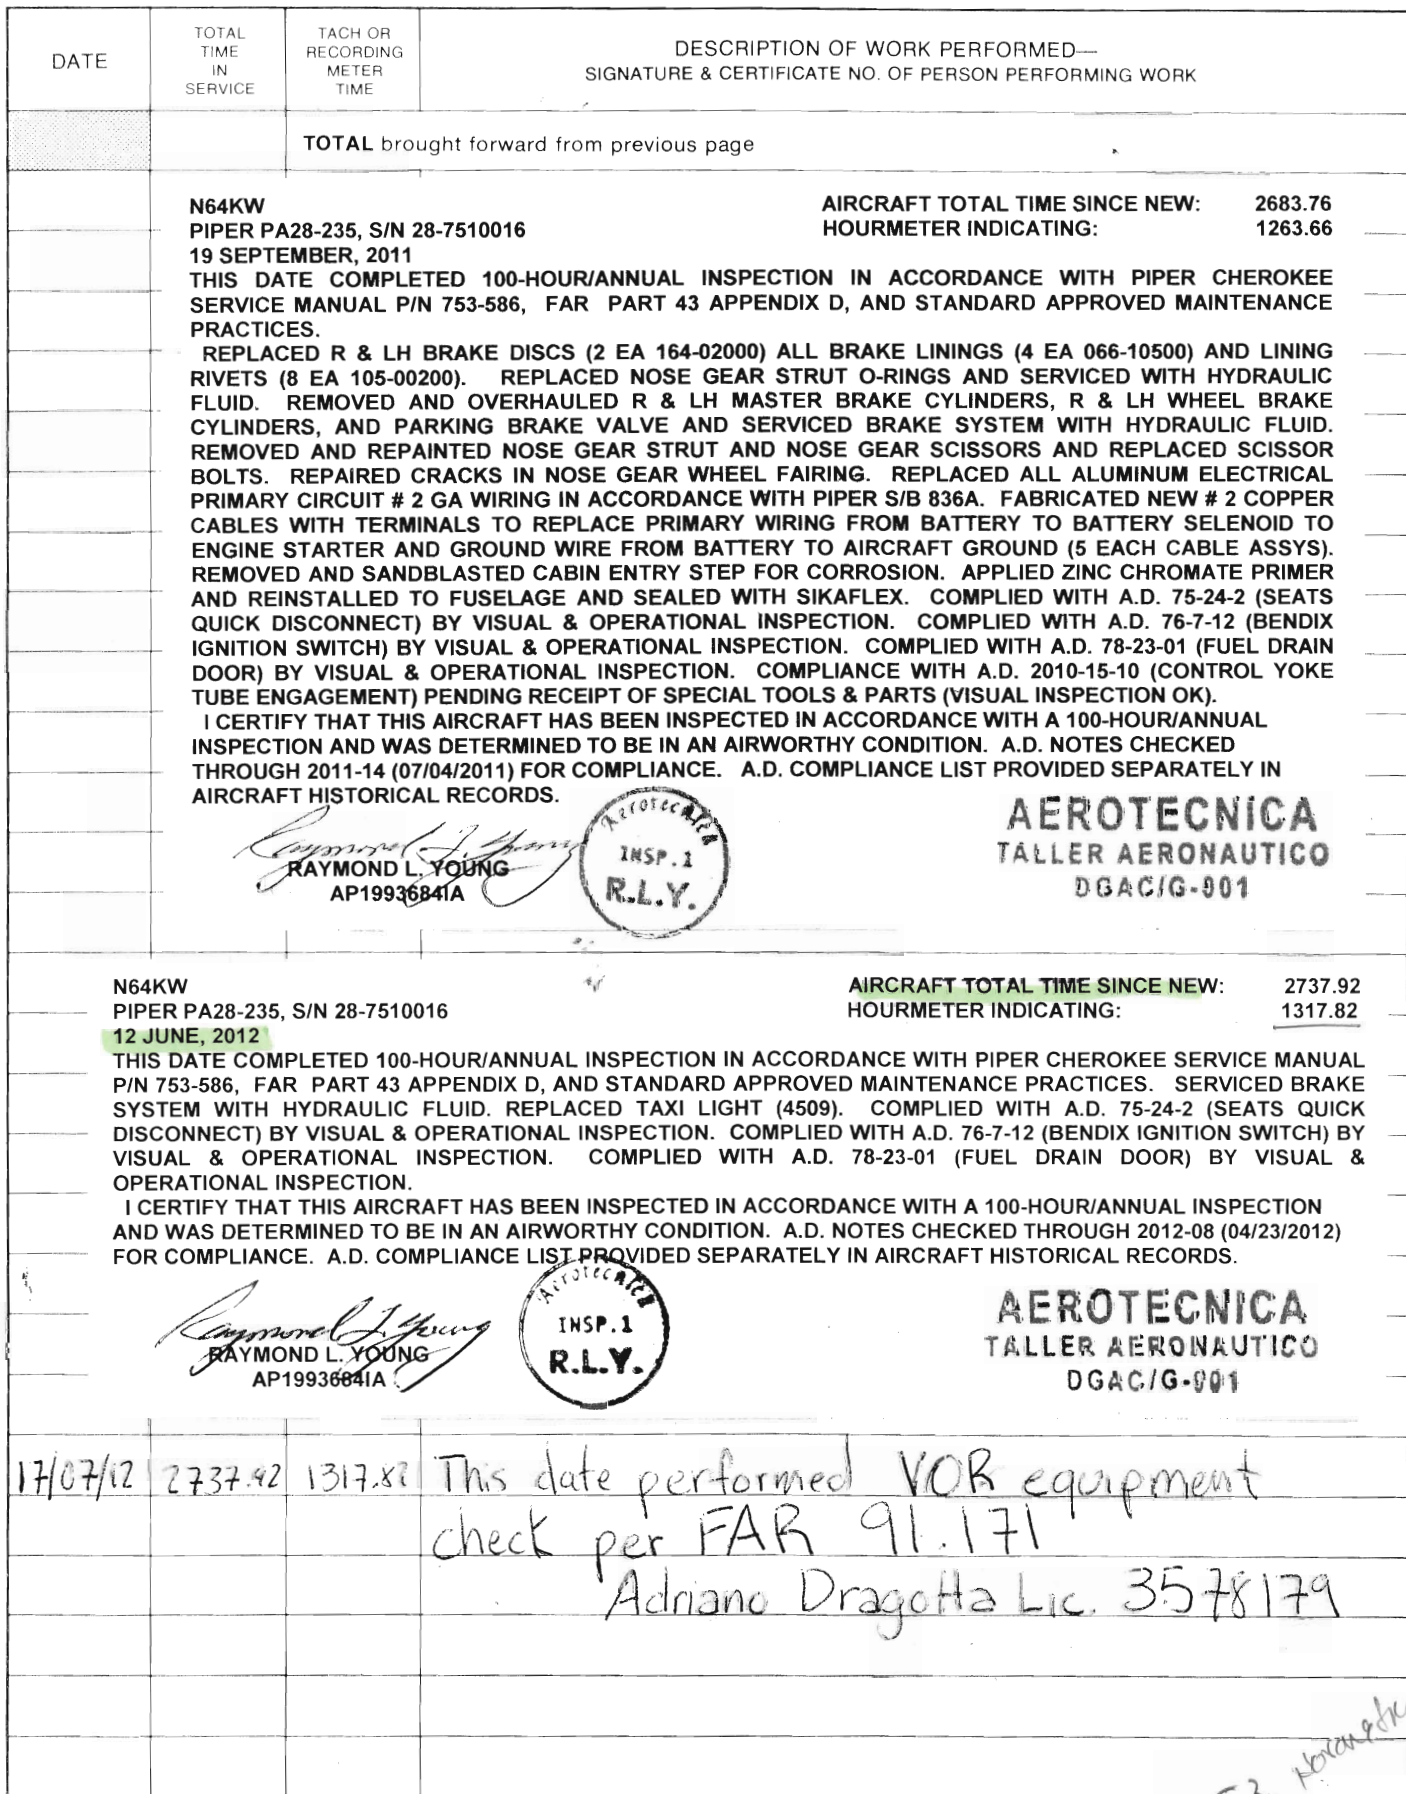 DATE
TOTAL TIME IN SERVICE
TACH OR RECORDING METER TIME
DESCRIPTION OF WORK PERFORMED—
SIGNATURE & CERTIFICATE NO. OF PERSON PERFORMING WORK
TOTAL brought forward from previous page
N64KW AIRCRAFT TOTAL TIME SINCE NEW: 2683.76
PIPER PA28-235, S/N 28-7510016 HOURMETER INDICATING: 1263.66
19 SEPTEMBER, 2011
THIS DATE COMPLETED 100-HOUR/ANNUAL INSPECTION IN ACCORDANCE WITH PIPER CHEROKEE
SERVICE MANUAL P/N 753-586, FAR PART 43 APPENDIX D, AND STANDARD APPROVED MAINTENANCE
PRACTICES.
REPLACED R & LH BRAKE DISCS (2 EA 164-02000) ALL BRAKE LININGS (4 EA 066-10500) AND LINING
RIVETS (8 EA 105-00200). REPLACED NOSE GEAR STRUT O-RINGS AND SERVICED WITH HYDRAULIC
FLUID. REMOVED AND OVERHAULED R & LH MASTER BRAKE CYLINDERS, R & LH WHEEL BRAKE
CYLINDERS, AND PARKING BRAKE VALVE AND SERVICED BRAKE SYSTEM WITH HYDRAULIC FLUID.
REMOVED AND REPAINTED NOSE GEAR STRUT AND NOSE GEAR SCISSORS AND REPLACED SCISSOR
BOLTS. REPAIRED CRACKS IN NOSE GEAR WHEEL FAIRING. REPLACED ALL ALUMINUM ELECTRICAL
PRIMARY CIRCUIT # 2 GA WIRING IN ACCORDANCE WITH PIPER S/B 836A. FABRICATED NEW # 2 COPPER
CABLES WITH TERMINALS TO REPLACE PRIMARY WIRING FROM BATTERY TO BATTERY SELENOID TO
ENGINE STARTER AND GROUND WIRE FROM BATTERY TO AIRCRAFT GROUND (5 EACH CABLE ASSYS).
REMOVED AND SANDBLASTED CABIN ENTRY STEP FOR CORROSION. APPLIED ZINC CHROMATE PRIMER
AND REINSTALLED TO FUSELAGE AND SEALED WITH SIKAFLEX. COMPLIED WITH A.D. 75-24-2 (SEATS
QUICK DISCONNECT) BY VISUAL & OPERATIONAL INSPECTION. COMPLIED WITH A.D. 76-7-12 (BENDIX
IGNITION SWITCH) BY VISUAL & OPERATIONAL INSPECTION. COMPLIED WITH A.D. 78-23-01 (FUEL DRAIN
DOOR) BY VISUAL & OPERATIONAL INSPECTION. COMPLIANCE WITH A.D. 2010-15-10 (CONTROL YOKE
TUBE ENGAGEMENT) PENDING RECEIPT OF SPECIAL TOOLS & PARTS (VISUAL INSPECTION OK).
I CERTIFY THAT THIS AIRCRAFT HAS BEEN INSPECTED IN ACCORDANCE WITH A 100-HOUR/ANNUAL
INSPECTION AND WAS DETERMINED TO BE IN AN AIRWORTHY CONDITION. A.D. NOTES CHECKED
THROUGH 2011-14 (07/04/2011) FOR COMPLIANCE. A.D. COMPLIANCE LIST PROVIDED SEPARATELY IN
AIRCRAFT HISTORICAL RECORDS.
Raymond L. Young
RAYMOND L. YOUNG
AP1993684IA
Aerotecnica
INSP.1
R.L.Y.
AEROTECNICA
TALLER AERONAUTICO
DGAC/G-001
N64KW AIRCRAFT TOTAL TIME SINCE NEW: 2737.92
PIPER PA28-235, S/N 28-7510016 HOURMETER INDICATING: 1317.82
12 JUNE, 2012
THIS DATE COMPLETED 100-HOUR/ANNUAL INSPECTION IN ACCORDANCE WITH PIPER CHEROKEE SERVICE MANUAL
P/N 753-586, FAR PART 43 APPENDIX D, AND STANDARD APPROVED MAINTENANCE PRACTICES. SERVICED BRAKE
SYSTEM WITH HYDRAULIC FLUID. REPLACED TAXI LIGHT (4509). COMPLIED WITH A.D. 75-24-2 (SEATS QUICK
DISCONNECT) BY VISUAL & OPERATIONAL INSPECTION. COMPLIED WITH A.D. 76-7-12 (BENDIX IGNITION SWITCH) BY
VISUAL & OPERATIONAL INSPECTION. COMPLIED WITH A.D. 78-23-01 (FUEL DRAIN DOOR) BY VISUAL &
OPERATIONAL INSPECTION.
I CERTIFY THAT THIS AIRCRAFT HAS BEEN INSPECTED IN ACCORDANCE WITH A 100-HOUR/ANNUAL INSPECTION
AND WAS DETERMINED TO BE IN AN AIRWORTHY CONDITION. A.D. NOTES CHECKED THROUGH 2012-08 (04/23/2012)
FOR COMPLIANCE. A.D. COMPLIANCE LIST PROVIDED SEPARATELY IN AIRCRAFT HISTORICAL RECORDS.
Raymond L. Young
RAYMOND L. YOUNG
AP1993684IA
Aerotecnica
INSP.1
R.L.Y.
AEROTECNICA
TALLER AERONAUTICO
DGAC/G-001
17/07/12 2737.92 1317.82 This date performed VOR equipment
check per FAR 91.171
Adriano Dragotta Lic. 3578179